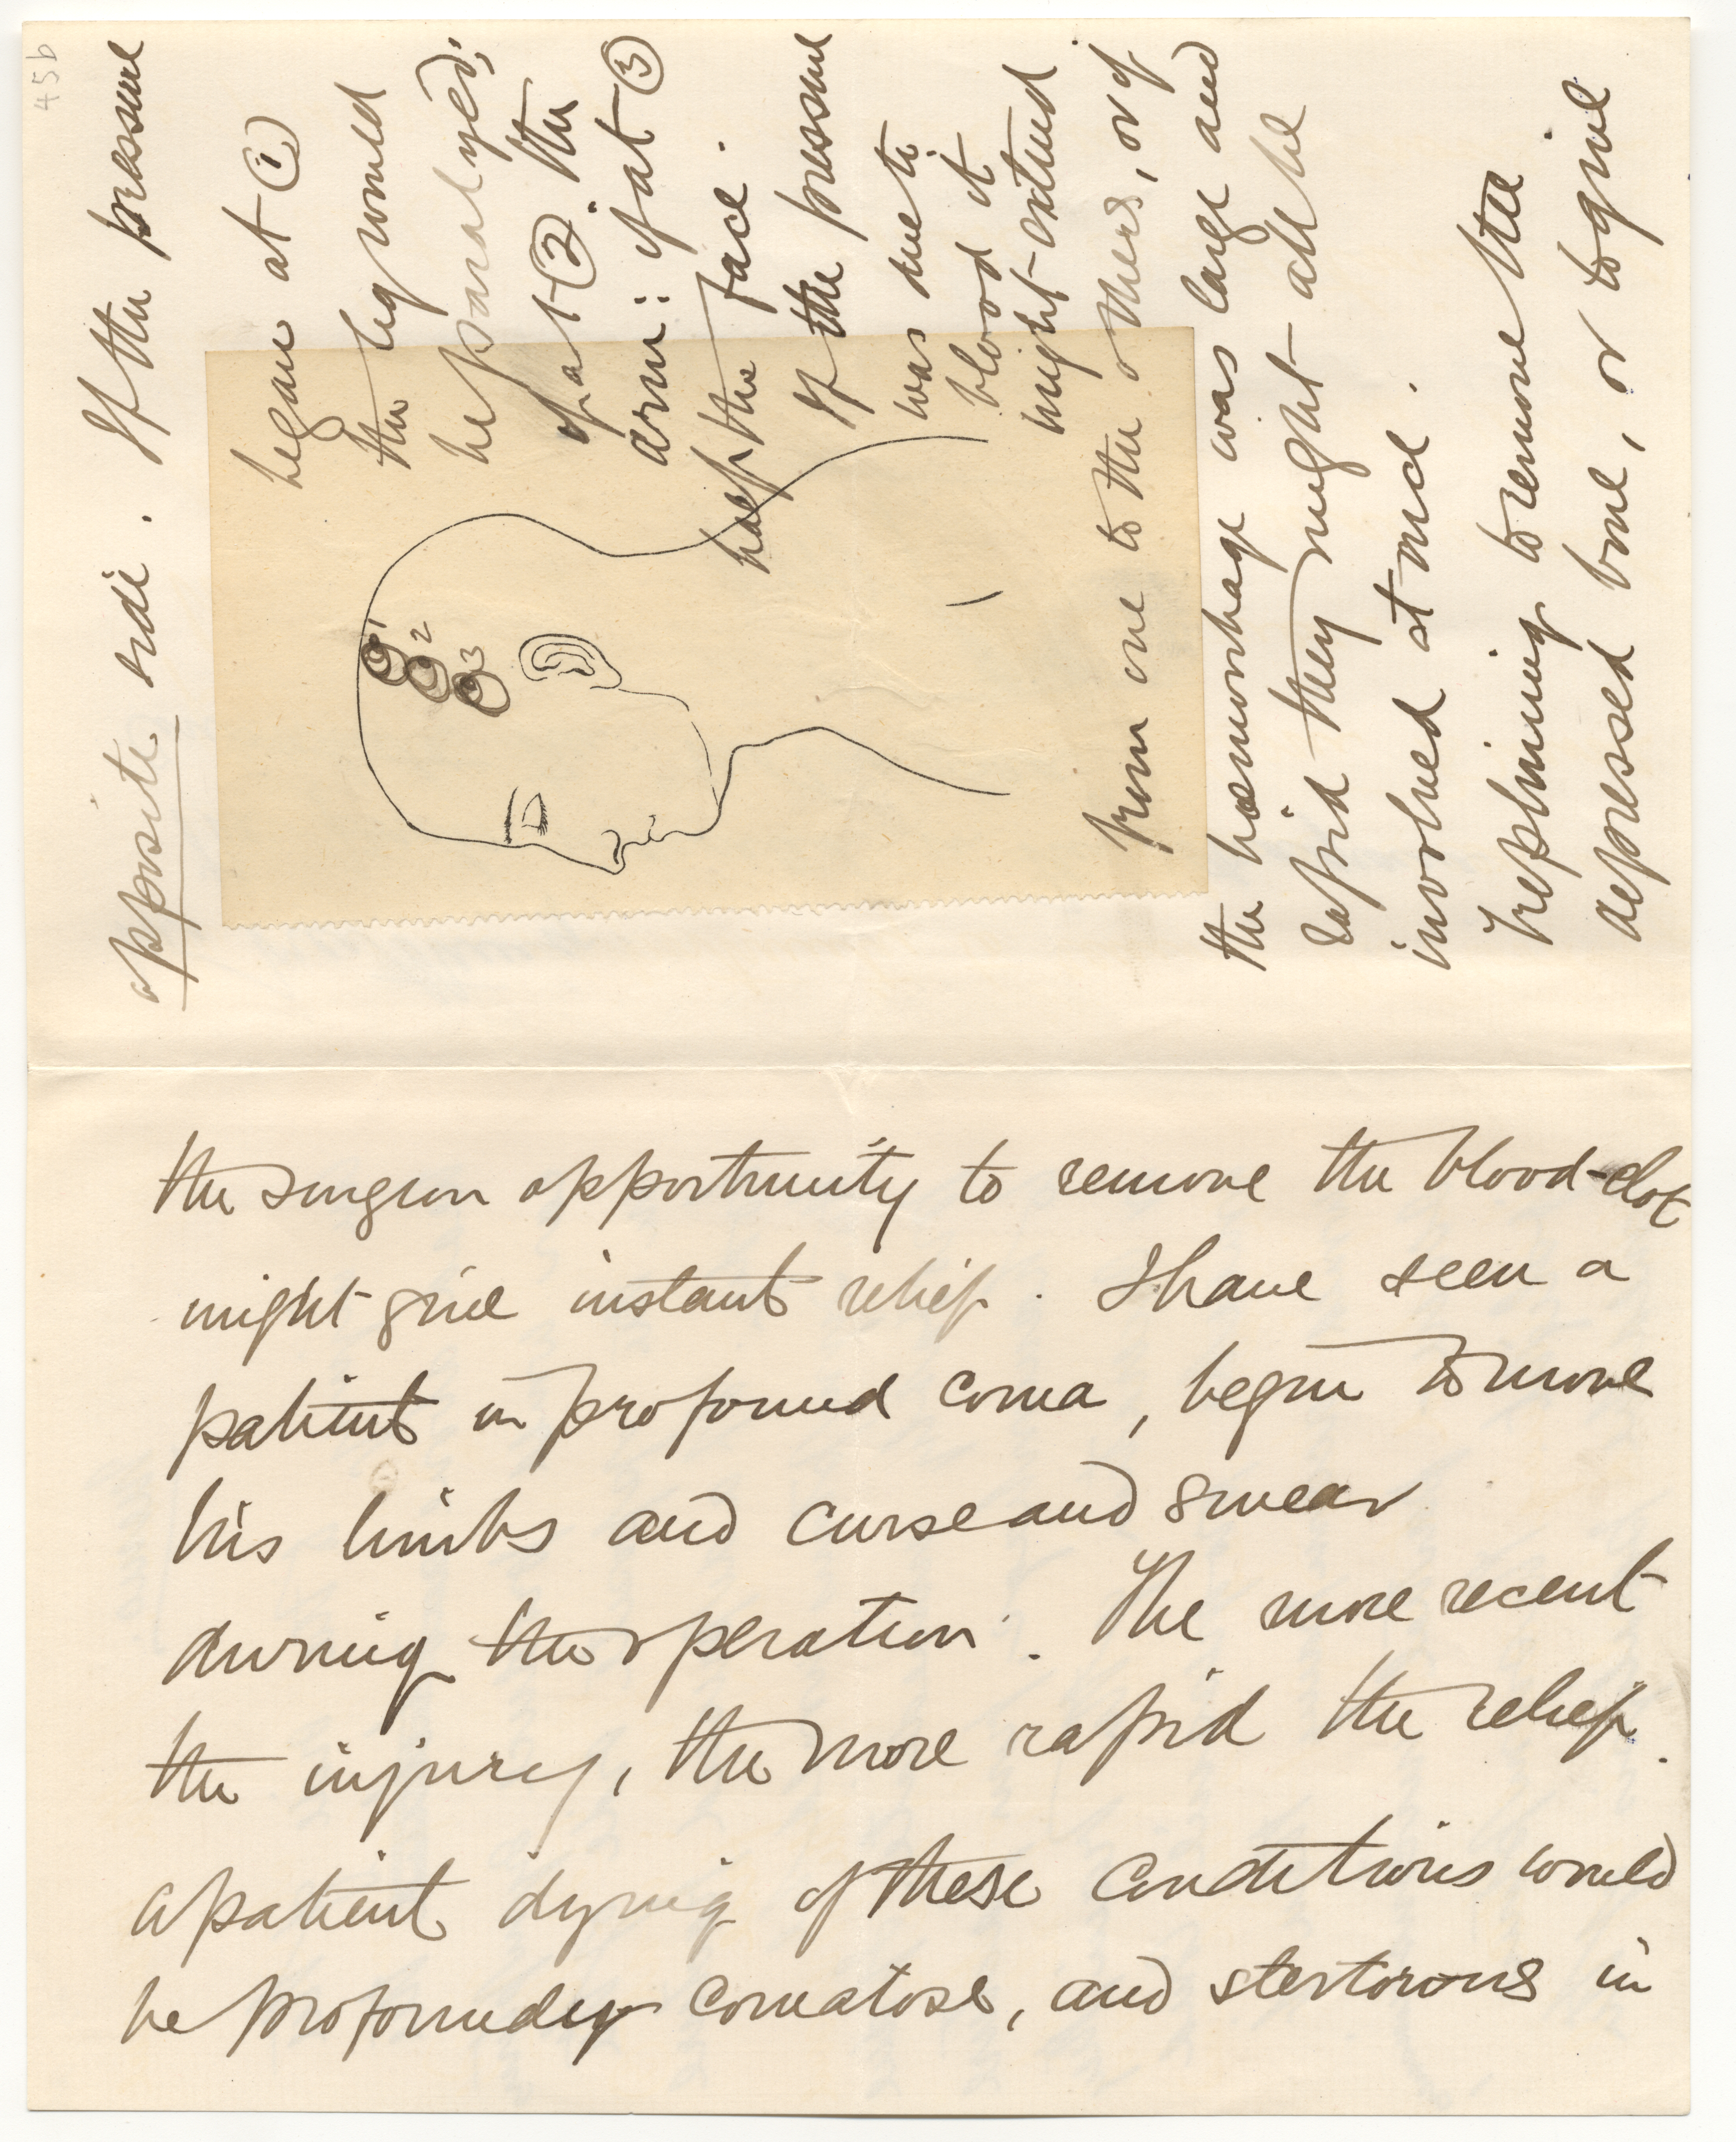 45b
opposite side. If the pressure
began at ①
the leg would
be paralyzed;
if at ②. the
arm: if at ③
half the face.
If the pressure
was due to
blood it
might extend
from one to the others, or if
the haemorrhage was large and
rapid they might all be
involved at once.
Trephining to remove the
depressed bone, or to give
1
2
3
the surgeon opportunity to remove the blood-clot
might give instant relief. I have seen a
patient in profound coma, begin to move
his limbs and curse and swear
during the operation. The more recent
the injury, the more rapid the relief.
A patient dying of these conditions would
be profoundly comatose, and stertorous in